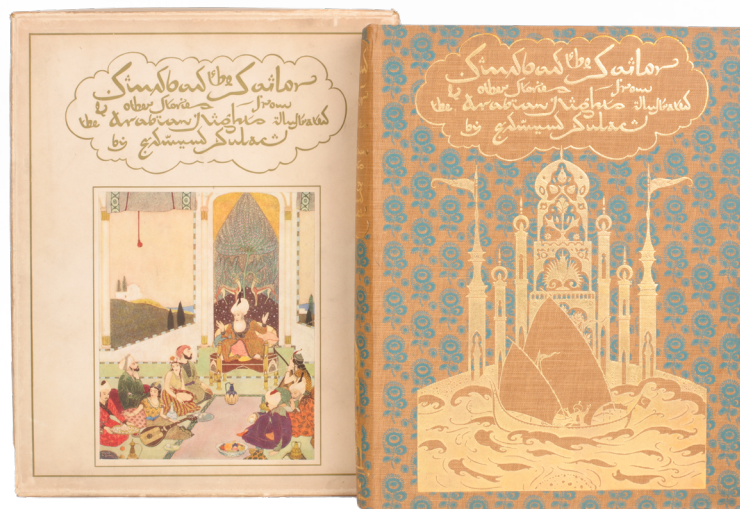 Sindbad the Sailor
& other stories from
the Arabian Nights illustrated
by Edmund Dulac
Sindbad the Sailor
& other stories from
the Arabian Nights illustrated
by Edmund Dulac